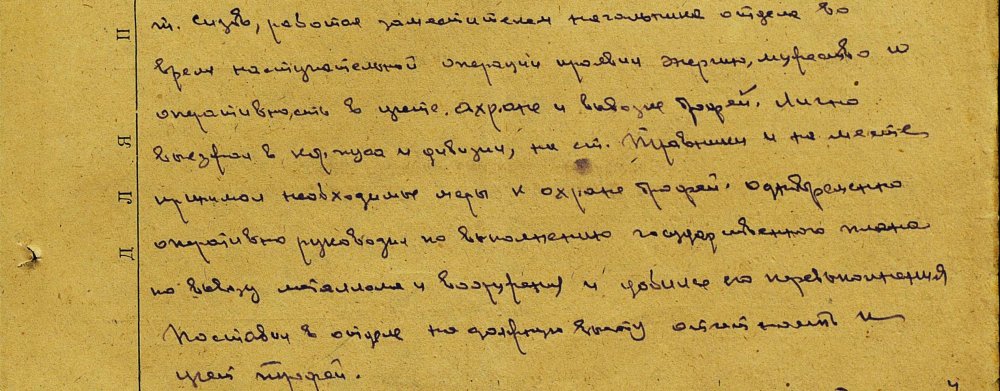 т. Сизов, работая заместителем начальника отдела во
время наступательной операции проявил энергию, мужество и
оперативность в учете, охране и вывозке трофей. Лично
выезжал в корпуса и дивизии, на ст. Травники и на месте
принимал необходимые меры к охране трофей. Одновременно
оперативно руководил по выполнению государственного плана
по вывозу металлома и вооружения и добился его перевыполнения
Поставил в отделе на должную высоту отчетность и
учет трофей.
Д Л Я П